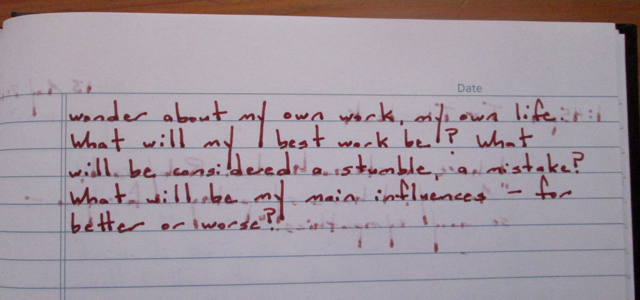 Date
wonder about my own work, my own life.
What will my best work be? What
will be considered a stumble, a mistake?
What will be my main influences - for
better or worse?